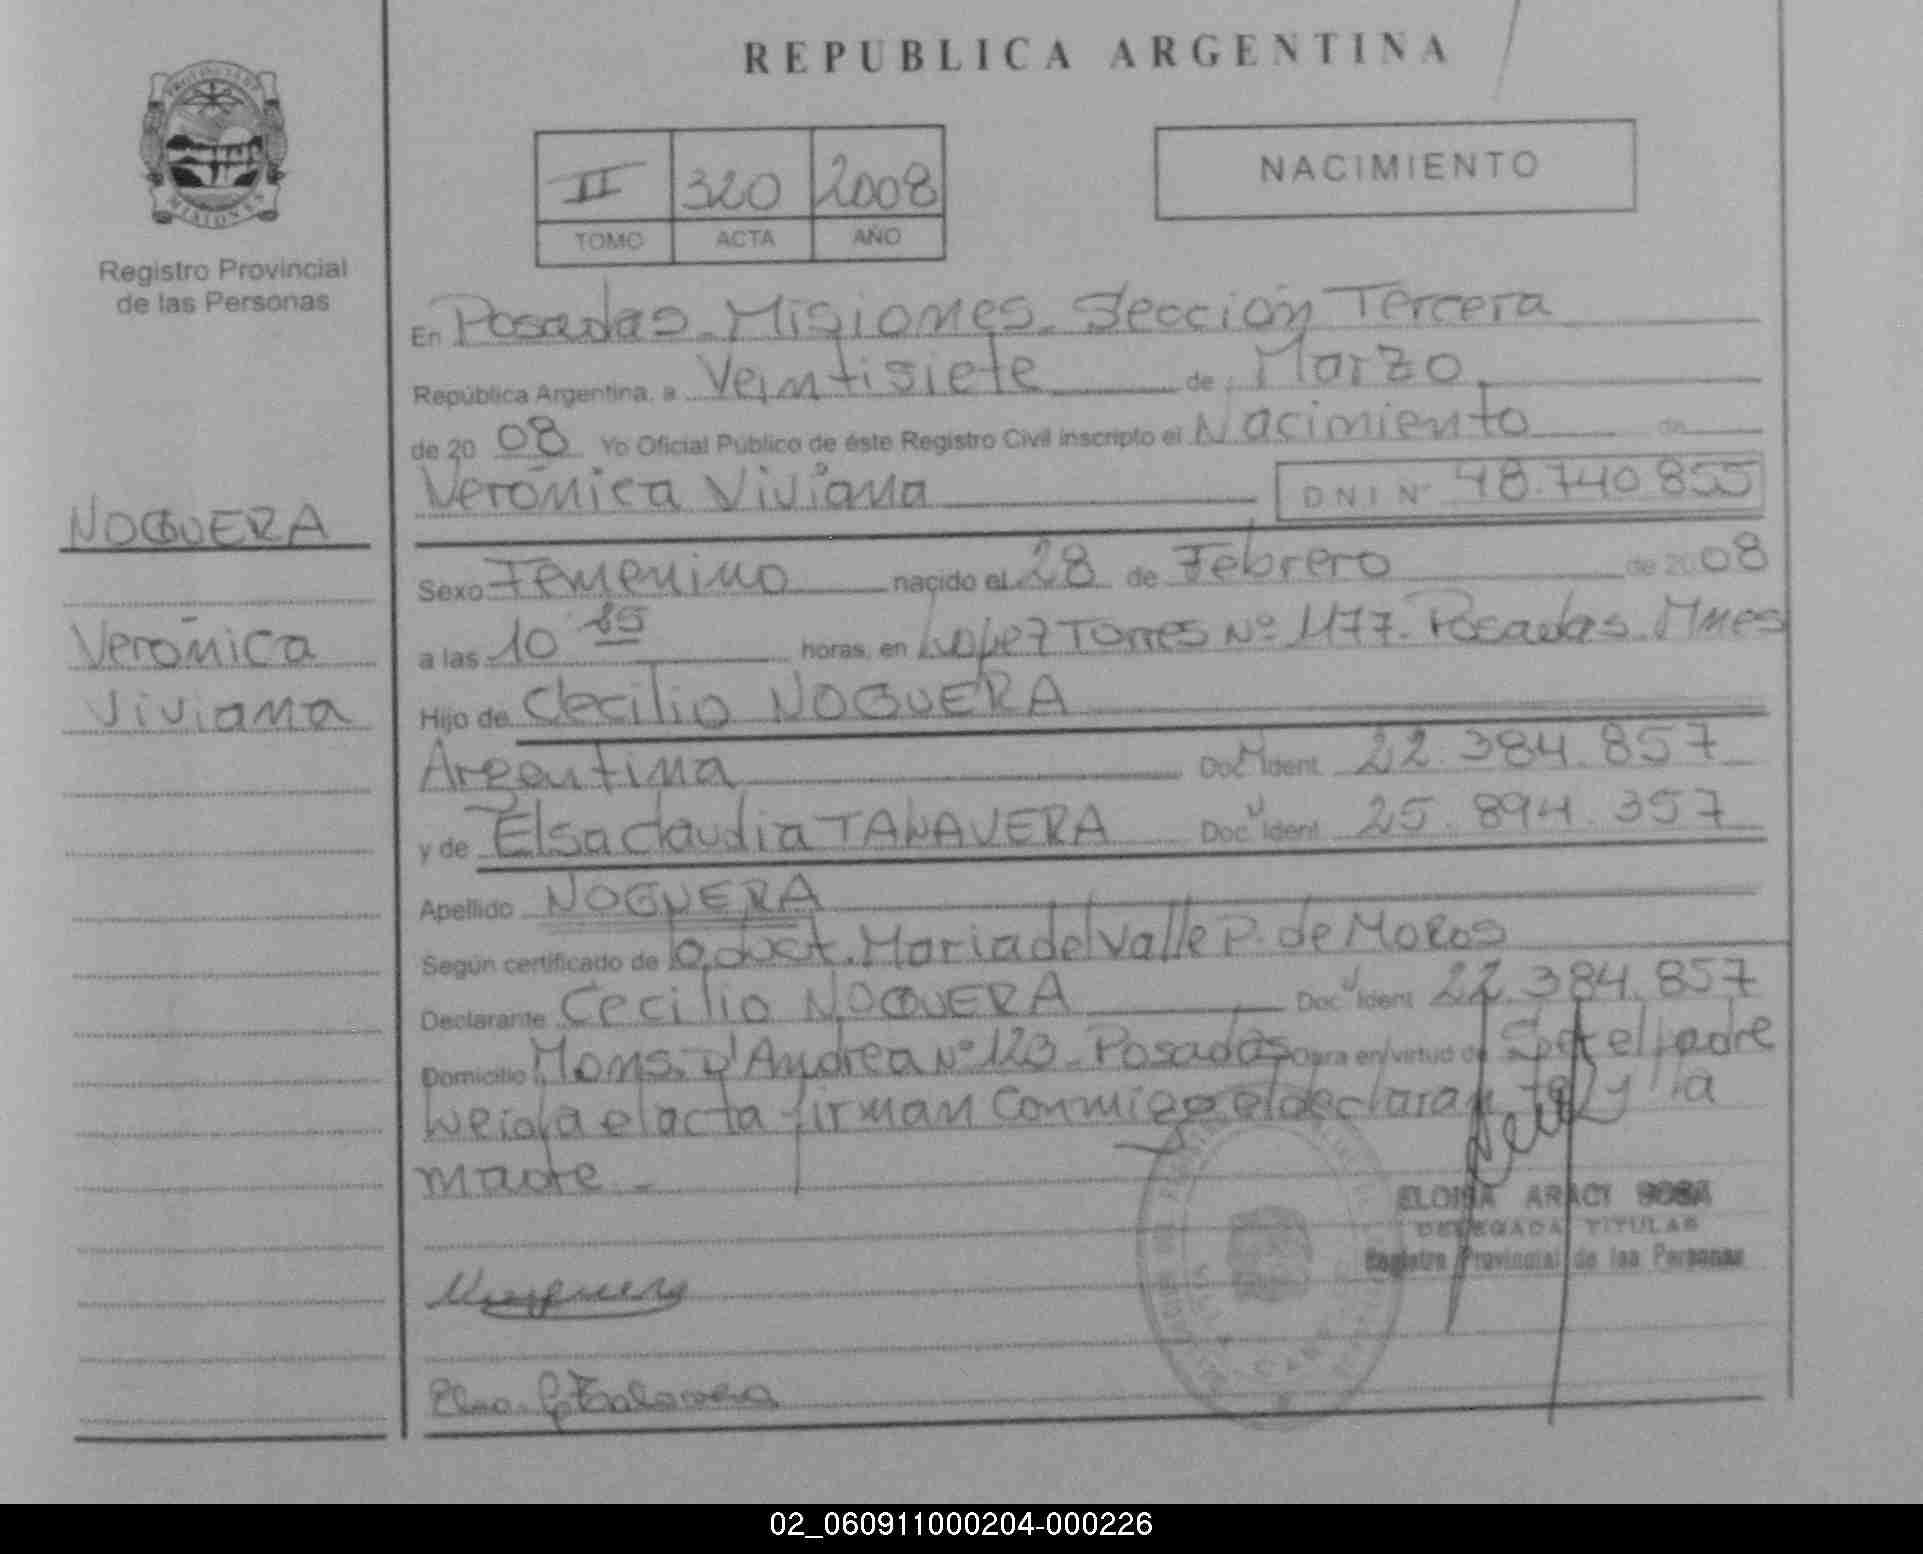 REPUBLICA ARGENTINA
PROVINCIA DE MISIONES
Registro Provincial
de las Personas
II 320 2008
TOMO ACTA AÑO
NACIMIENTO
En Posadas - Misiones - Sección Tercera
República Argentina, a Veintisiete de Marzo
de 20 08 Yo Oficial Público de éste Registro Civil inscripto el Nacimiento de
Verónica Viviana DNI Nº 48.740.855
NOGUERA
Verónica
Viviana
Sexo Femenino nacido el 28 de Febrero de 20 08
a las 10 horas, en López Torres Nº 1177. Posadas. Mnes
Hijo de Cecilio NOGUERA
Argentina Doc Ident. 22.384.857
y de Elsa Claudia TALAVERA Doc Ident. 25.894.357
Apellido NOGUERA
Según certificado de Obst. Maria del Valle P. de Moros
Declarante Cecilio NOGUERA Doc Ident 22.384.857
Domicilio Mons. D'Andrea Nº 123 - Posadas Obra en virtud de Ser el padre
Leida el acta firman Conmigo el declarante y la
madre -
ELOISA ARACI SOSA
DELEGADA TITULAR
Registro Provincial de las Personas
Noguera
Elsa C Talavera
02_060911000204-000226